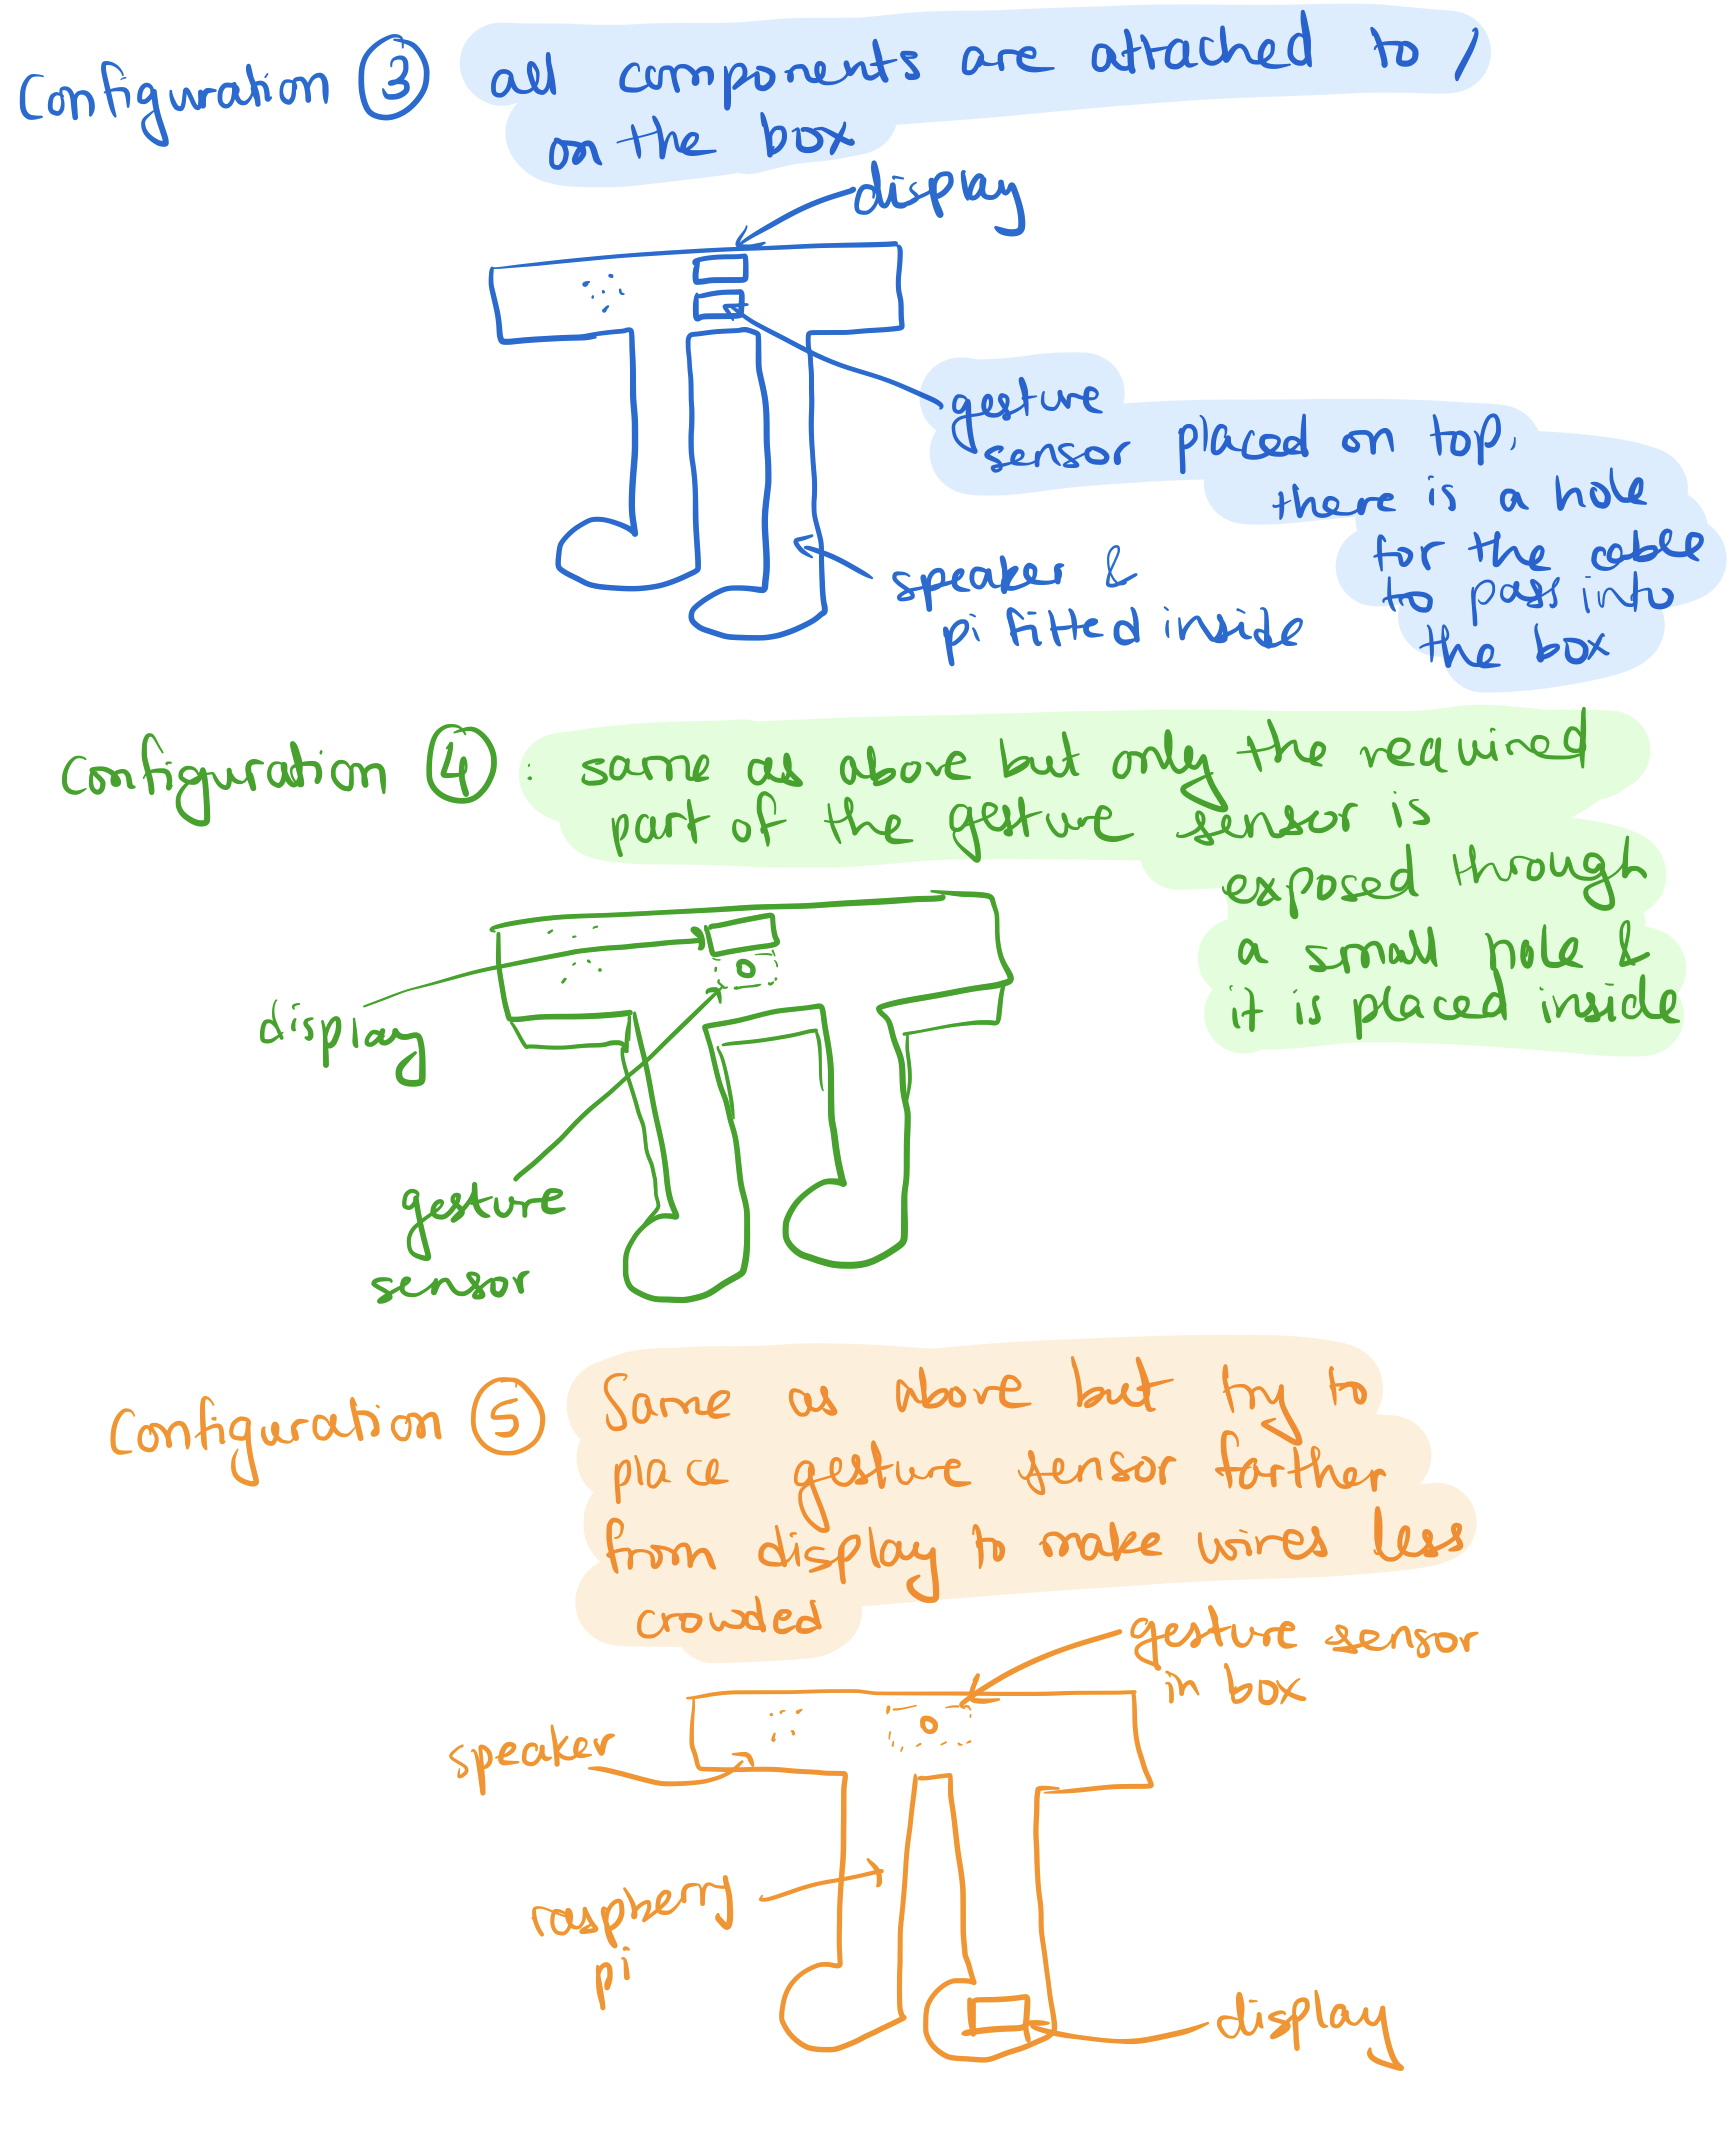 Configuration ③ all components are attached to /
on the box
display
gesture
sensor placed on top,
there is a hole
for the cable
to pass into
the box
speaker &
pi fitted inside
Configuration ④ : same as above but only the required
part of the gesture sensor is
exposed through
a small hole &
it is placed inside
display
gesture
sensor
Configuration ⑤ Same as above but try to
place gesture sensor farther
from display to make wires less
crowded
gesture sensor
in box
speaker
raspberry
pi
display